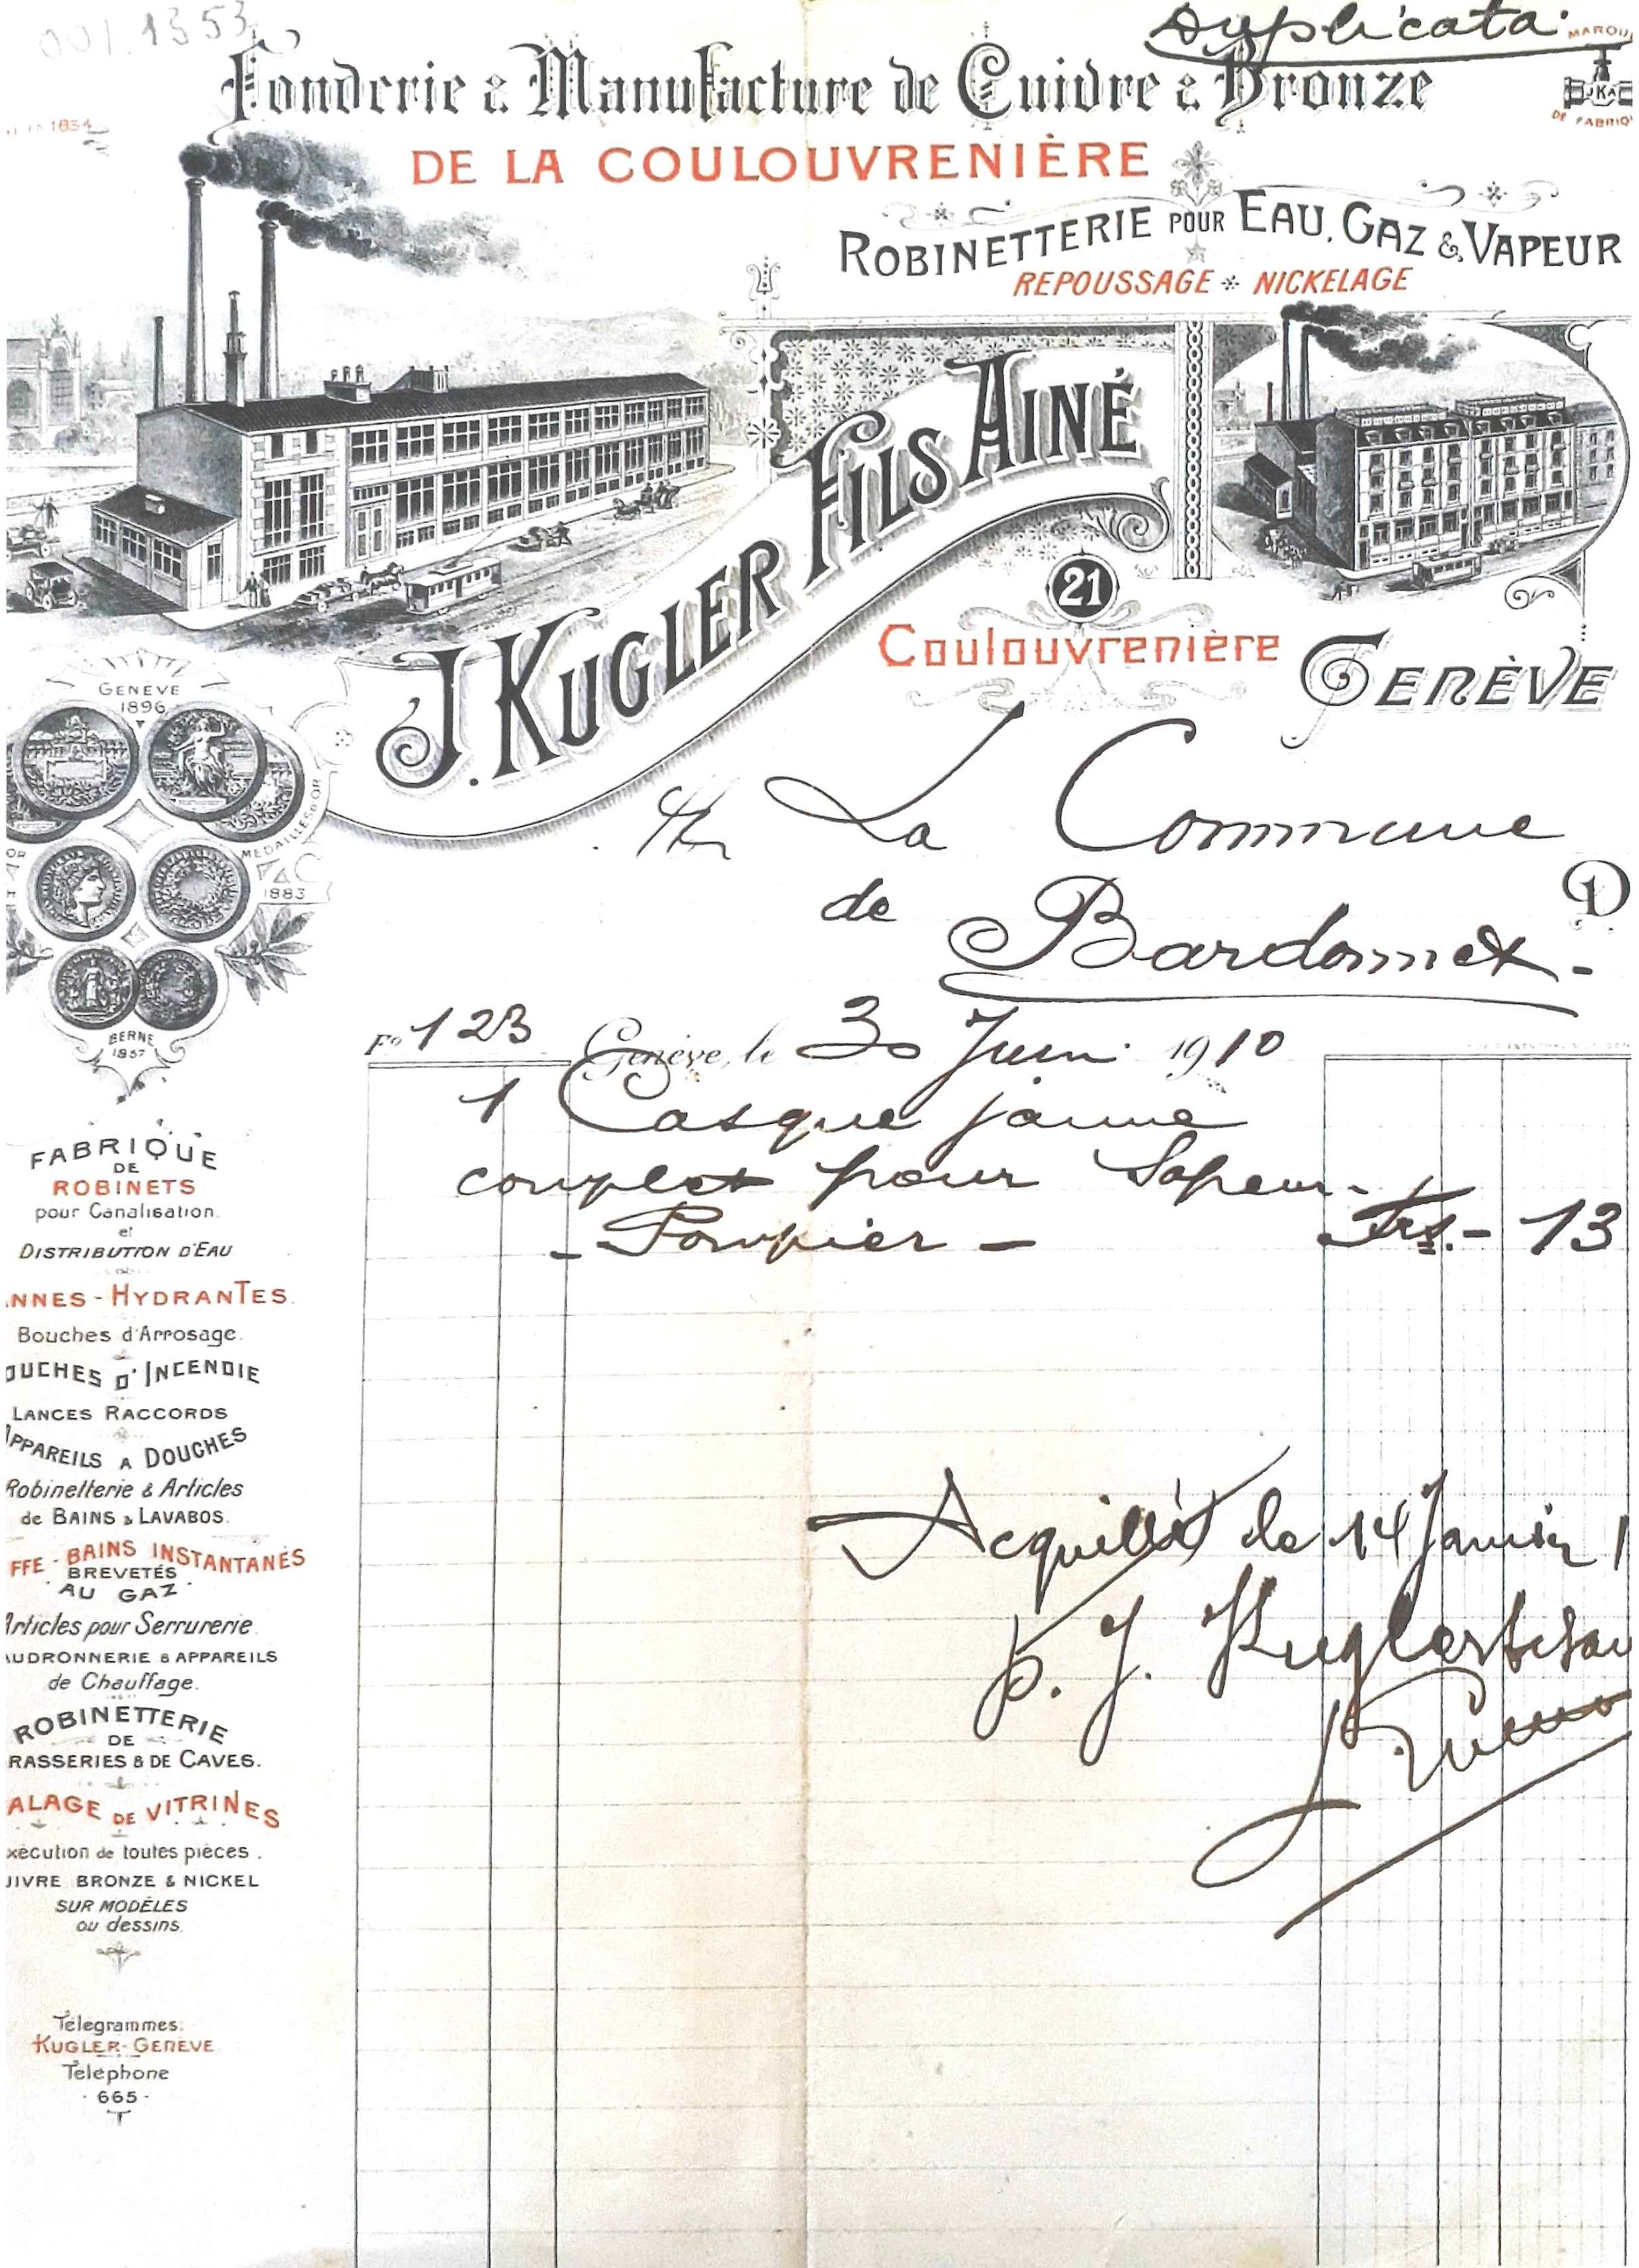 001.1353
Duplicata
Fonderie & Manufacture de Cuivre & Bronze
DE LA COULOUVRENIÈRE
1854
DE FABRIQ
JKA
ROBINETTERIE POUR EAU, GAZ & VAPEUR
REPOUSSAGE * NICKELAGE
J. KUGLER FILS AINÉ
21
Coulouvrenière
GENÈVE
GENÈVE
1896
MÉDAILLES D'OR
1883
BERNE
1857
La Commune
D
de Bardonnex.-
Fo 123 Genève, le 30 Juin 1910
1 Casque jaune
complet pour Sapeur-
- Pompier - Frs.- 13
Acquitté le 14 Janvier 1
p. J. Kugler
FABRIQUE
DE
ROBINETS
pour Canalisation.
et
DISTRIBUTION D'EAU
NNES - HYDRANTES.
Bouches d'Arrosage.
OUCHES D'INCENDIE
LANCES RACCORDS
APPAREILS A DOUCHES
Robinetterie & Articles
de BAINS & LAVABOS.
FFE - BAINS INSTANTANÉS
BREVETÉS
AU GAZ
Articles pour Serrurerie.
UDRONNERIE & APPAREILS
de Chauffage.
ROBINETTERIE
DE
RASSERIES & DE CAVES.
ALAGE DE VITRINES
xécution de toutes pièces.
UIVRE BRONZE & NICKEL
SUR MODÈLES
ou dessins.
Télégrammes:
KUGLER-GENÈVE
Téléphone
- 665 -